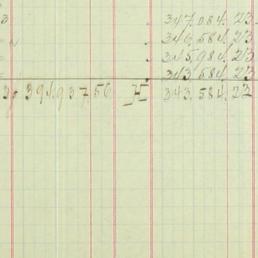 3 347.084.23
346.584.23
345.984.23
343.584.23
39.394.937.50 H 343.584.23